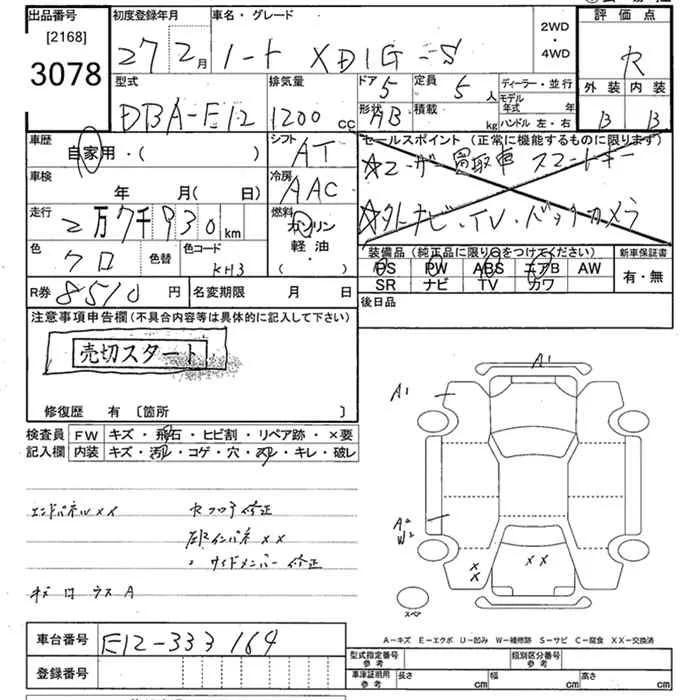 出品番号
[2168]
3078
初度登録年月
27 2月
車名・グレード
ノート XDIG-S
2WD
・
4WD
評価点
R
外装 内装
B B
型式
DBA-E12
排気量
1200cc
ドア 5
定員 5人
形状 AB
積載 kg
ディーラー・並行
モデル年式 年
ハンドル 左・右
車歴
自家用・( )
シフト
AT
セールスポイント (正常に機能するものに限ります)
☆ユーザー買取車 スマートキー
☆外ナビ・TV・バックカメラ
車検
年 月(日)
冷房
AAC
走行
2万7千930km
燃料
ガソリン
軽油・
・( )
色
クロ
色替
色コード
KH3
装備品 (純正品に限り○をつけてください)
PS PW ABS エアB AW
SR ナビ TV カワ
新車保証書
有・無
R券 8510円
名変期限 月 日
後日品
注意事項申告欄 (不具合内容等は具体的に記入して下さい)
売切スタート
修復歴 有 〔箇所 〕
検査員 FW キズ・飛石・ヒビ割・リペア跡・×要
記入欄 内装 キズ・汚れ・コゲ・穴・スレ・キレ・破レ
エンドパネルメイ
修正
XX
・サイドメンバー修正
A
A1
A1
A2
W2
XX
XX
スペア
A-キズ E-エクボ U-凹み W-補修跡 S-サビ C-腐食 XX-交換済
車台番号 E12-333164
登録番号
型式指定番号
参考
類別区分番号
参考
車庫証明用
参考
長さ cm 幅 cm 高さ cm